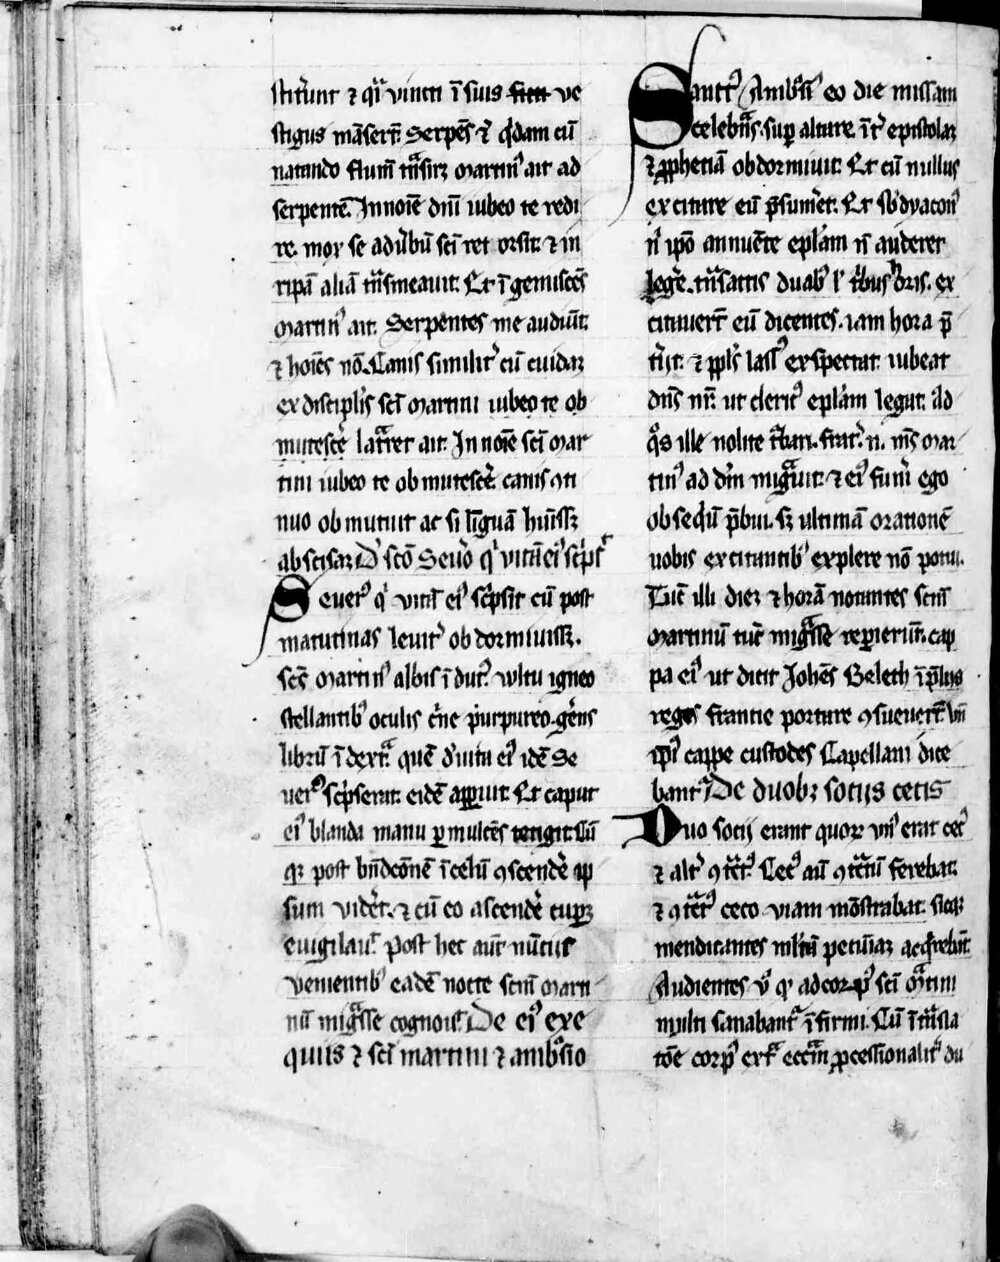 stit̄unt ⁊ qͣi vincti ī suis sicu ve
stigiis māserūt. Serpēs ē qͥdam cū
natando flum̄ tͣnsirꝫ martinꝰ ait ad
serpentē. In noīe dn̄i iubeo te redi
re. mox se ad v̓bū sci̅ ret orsit. ⁊ in
ripā aliā tͣnsmeauit. Et īgemiscēs
martinꝰ ait. Serpentes me audiūt.
⁊ hoīes nō. Canis similit̓ cū cuidaꝫ
ex discipl̓is sci̅ martini
mutesce latͣret ait. In noīe sci̅ mar
tini iubeo te obmutescē. canis ꝯti
nuo obmutuit ac si linguā huissꝫ
abscisaꝫ D̓ sco̅ Seuo̓ qͥ vitā eiꝰ sc̓ps̓
Seuerꝰ qͥ vitā eiꝰ sc̓psit cū post
matutinas leuit̓ obdormiuissꝫ.
scs̄ martinꝰ albis īdutꝰ. vltu igneo
stellantibꝰ oculis cͥne purpureo. gēns
librū ī dextͣ. quē d̓ vita eiꝰ idē Se
uerꝰ sc̓pserat. eidē apparuit. Et caput
eiꝰ blanda manu ꝑmulcēs tetigit. Cū
qꝫ post bn̄dcōnē ī celū ꝯscendē ip
sum vidēt. ⁊ cū eo ascendē cupēꝫ
euigilauit. Post hec aūt nūtiis
venientibꝰ eadē nocte scm̄ marti
nū migͣsse cognouit. De eiꝰ exe
quiis ⁊ sci̅ martini ⁊ ambͦsio
Sanctꝰ Ambͦsiꝰ eo die missam
celebͣns. sup altare. īt̓ epistolaꝫ
⁊ ꝓphetiā obdormiuit. Et cū nullus
excitare eū p̄sumēt. Et sb̓dyaconꝰ
nͥ ipō annuēte epl̓am nō auderet
legē. tͣnsactis duabꝰ l̓ tͥbus horis. ex
citauert̄ eū dicentes. iam hora p̄
tijt. ⁊ ppl̓s lassꝰ exspectat. iubeat
dn̄s nr̄. ut clericꝰ epl̓am legat. Ad
qͦs ille nolite tͥbari. fratͥ. n. mͥs mar
tinꝰ ad dm̄ migͣuit. ⁊ eiꝰ funi ego
obseqͥū p̄bui. sꝫ ultimā orationē
uobis excitantibꝰ explere nō potui.
Tūc illi diem ⁊ horā notantes scm̄
martinū tūc migͣsse repierūt. cap
pa eiꝰ ut dicit Johēs Beleth ī p̄liis
reges francie portare ꝯsueuert̄. Vn̄
ipiꝰ cappe custodes Capellani dice
bantͬ De duobꝫ sociis cecis
Duo socij erant quoꝝ vnꝰ erat cecꝰ
⁊ alt̓ ꝯtͣctꝰ. Cecꝰ aū ꝯtͣctū ferebat.
⁊ ꝯtͣctꝰ ceco viam mōstrabat. sicqꝫ
mendicantes mltā pecuniaꝫ acqͥrebāt.
Audientes v̓o qꝰ ad corpꝰ sci̅ Mͣtini
multi sanabantͬ īfirmi. Cū ītͣnsla
tōe corpꝰ extͣ eccl̓am ꝓcessionalit̓ du